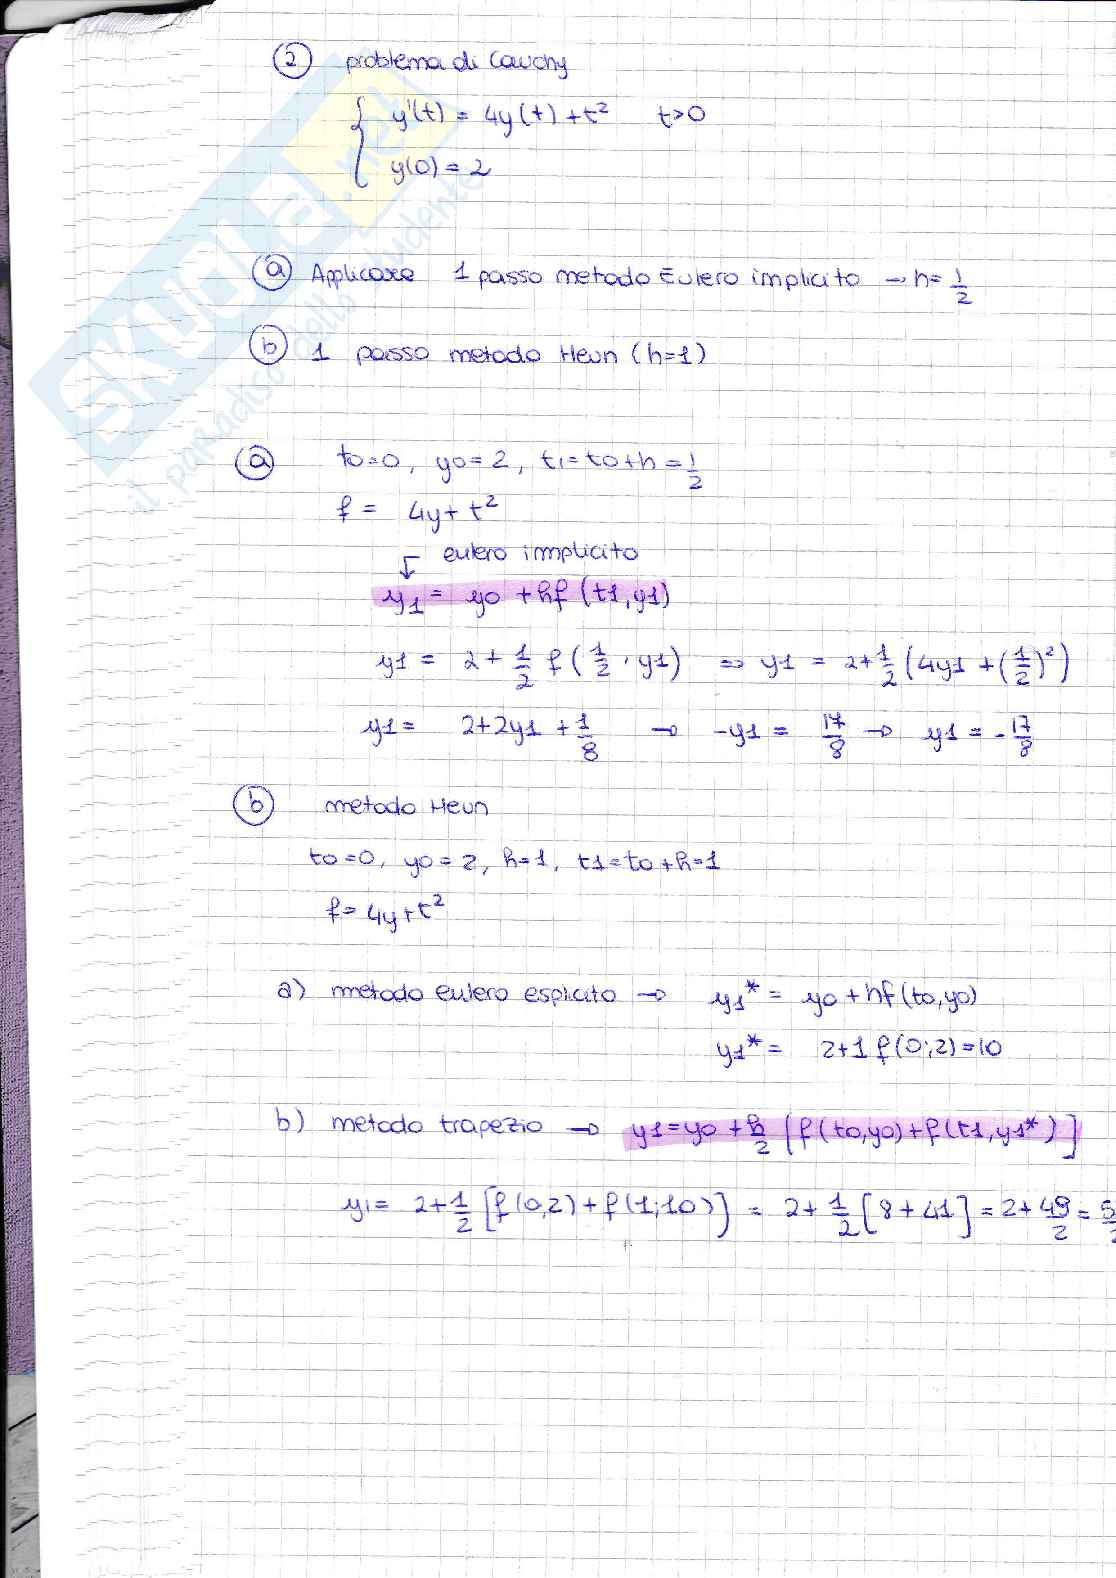 2 problema di Cauchy
y'(t) = 4y(t) + t² t>0
y(0) = 2
SKUOLA.net
il paradiso dello studente
a Applicare 1 passo metodo Eulero implicito → h=1/2
b 1 passo metodo Heun (h=1)
a t0=0, y0=2, t1=t0+h=1/2
f = 4y+t²
eulero implicito
y1 = y0 + hf(t1,y1)
y1 = 2+1/2 f(1/2, y1) => y1 = 2+1/2(4y1+(1/2)²)
y1 = 2+2y1+1/8 → -y1 = 17/8 → y1 = -17/8
b metodo Heun
t0=0, y0=2, h=1, t1=t0+h=1
f=4y+t²
a) metodo eulero esplicito → y1* = y0+hf(t0,y0)
y1* = 2+1 f(0;2)=10
b) metodo trapezio → y1=y0+h/2[f(t0,y0)+f(t1,y1*)]
y1= 2+1/2[f(0,2)+f(1;10)] = 2+1/2[8+41]=2+49/2=